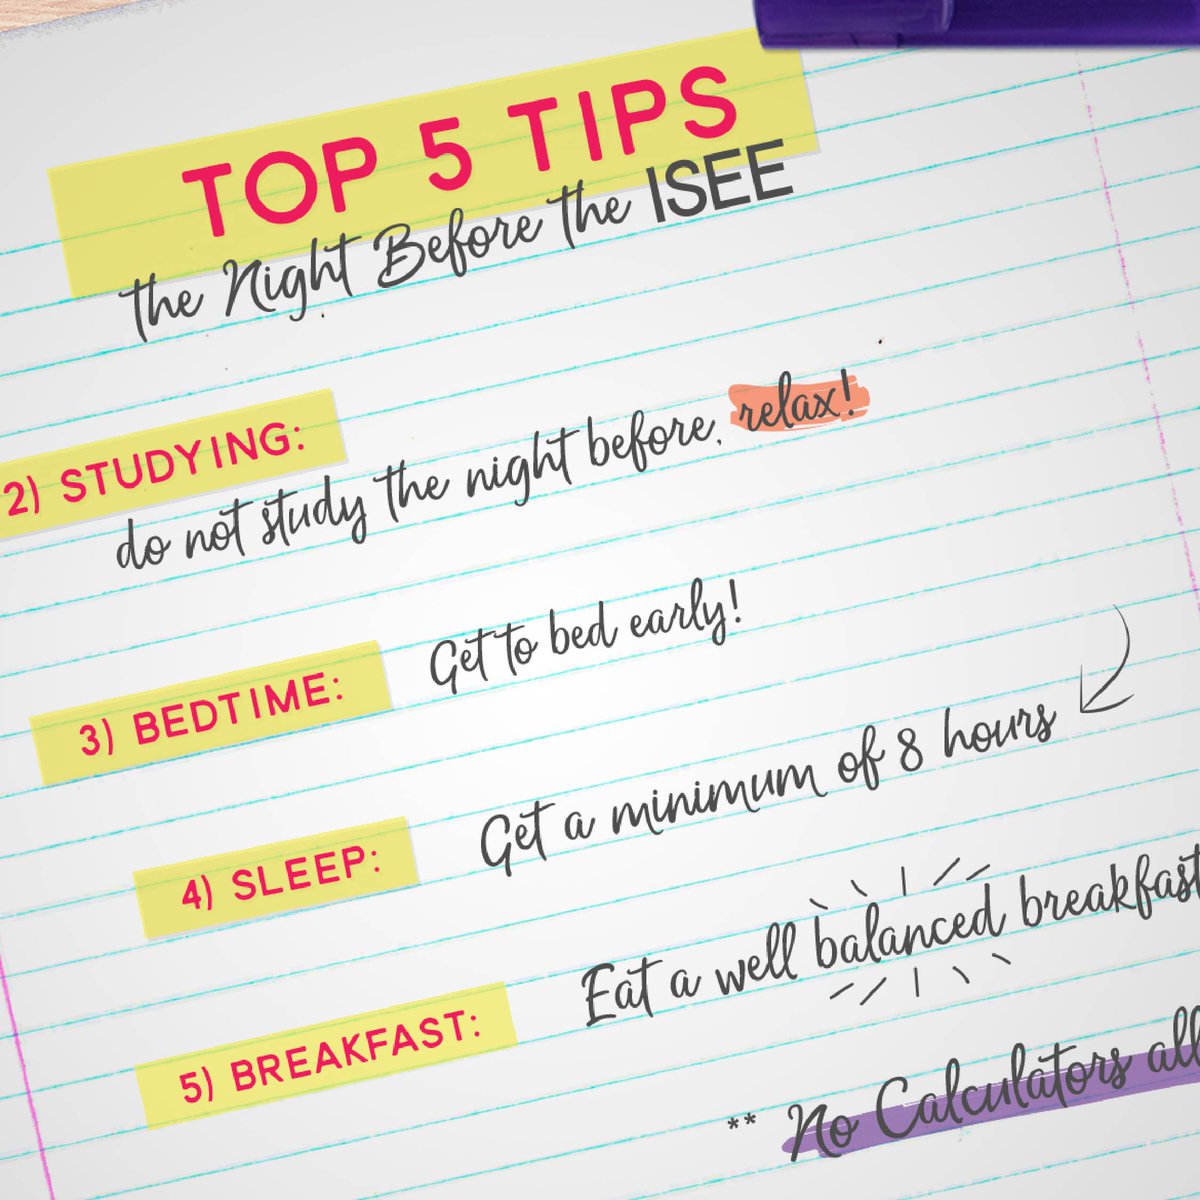 TOP 5 TIPS
the Night Before the ISEE
2) STUDYING:
do not study the night before, relax!
3) BEDTIME: Get to bed early!
4) SLEEP: Get a minimum of 8 hours
5) BREAKFAST: Eat a well balanced breakfast
** No Calculators all